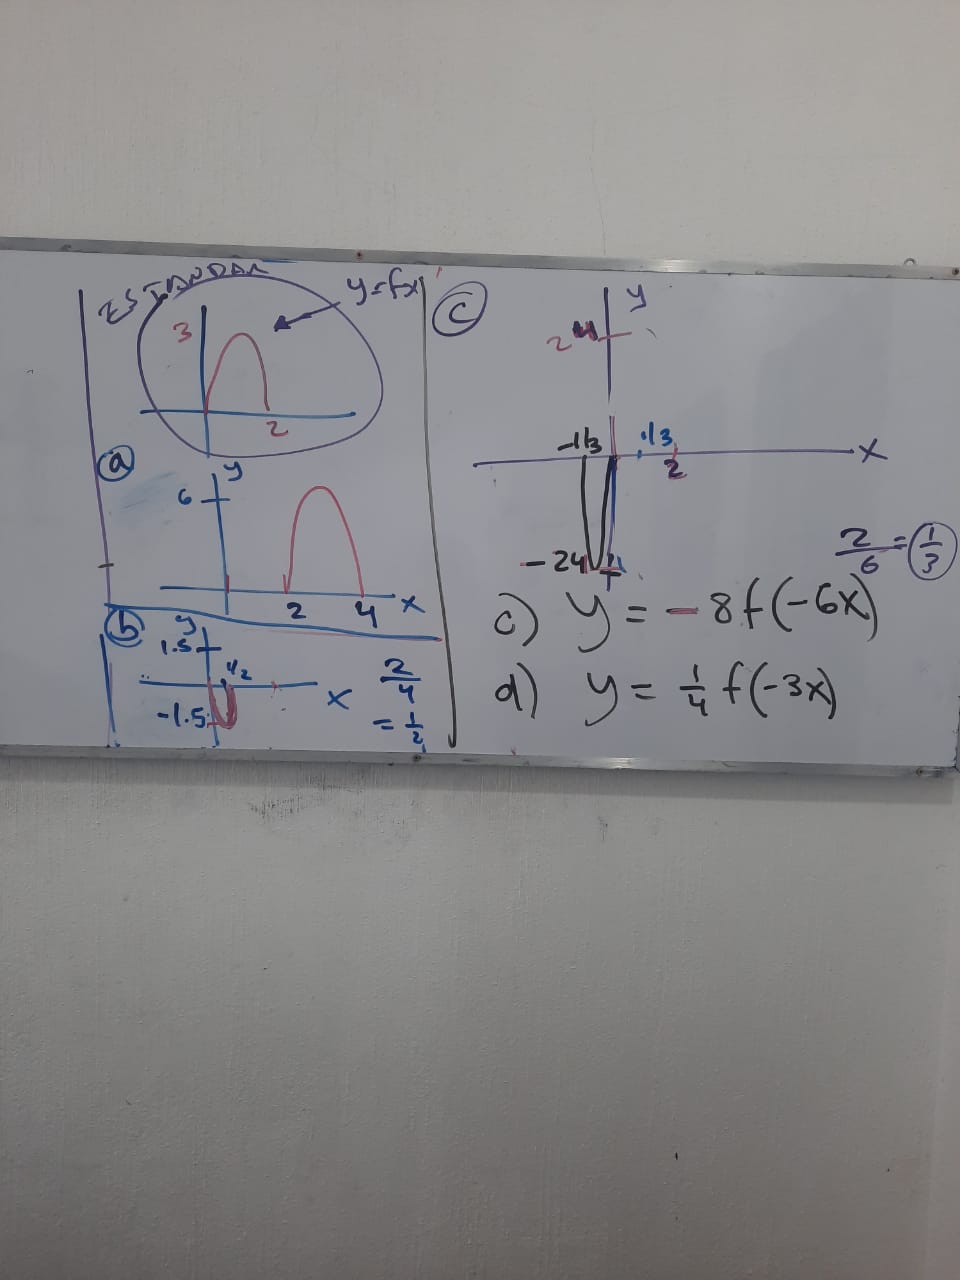 ESTANDAR
y=fx
3
2
a
y
6
2 4 x
b
y
1.5
1/2
x
-1.5
2/4
= 1/2
c
y
24
-1/3
1/3
2
x
-24
2/6 = 1/3
c) y = -8f(-6x)
d) y = 1/4 f(-3x)